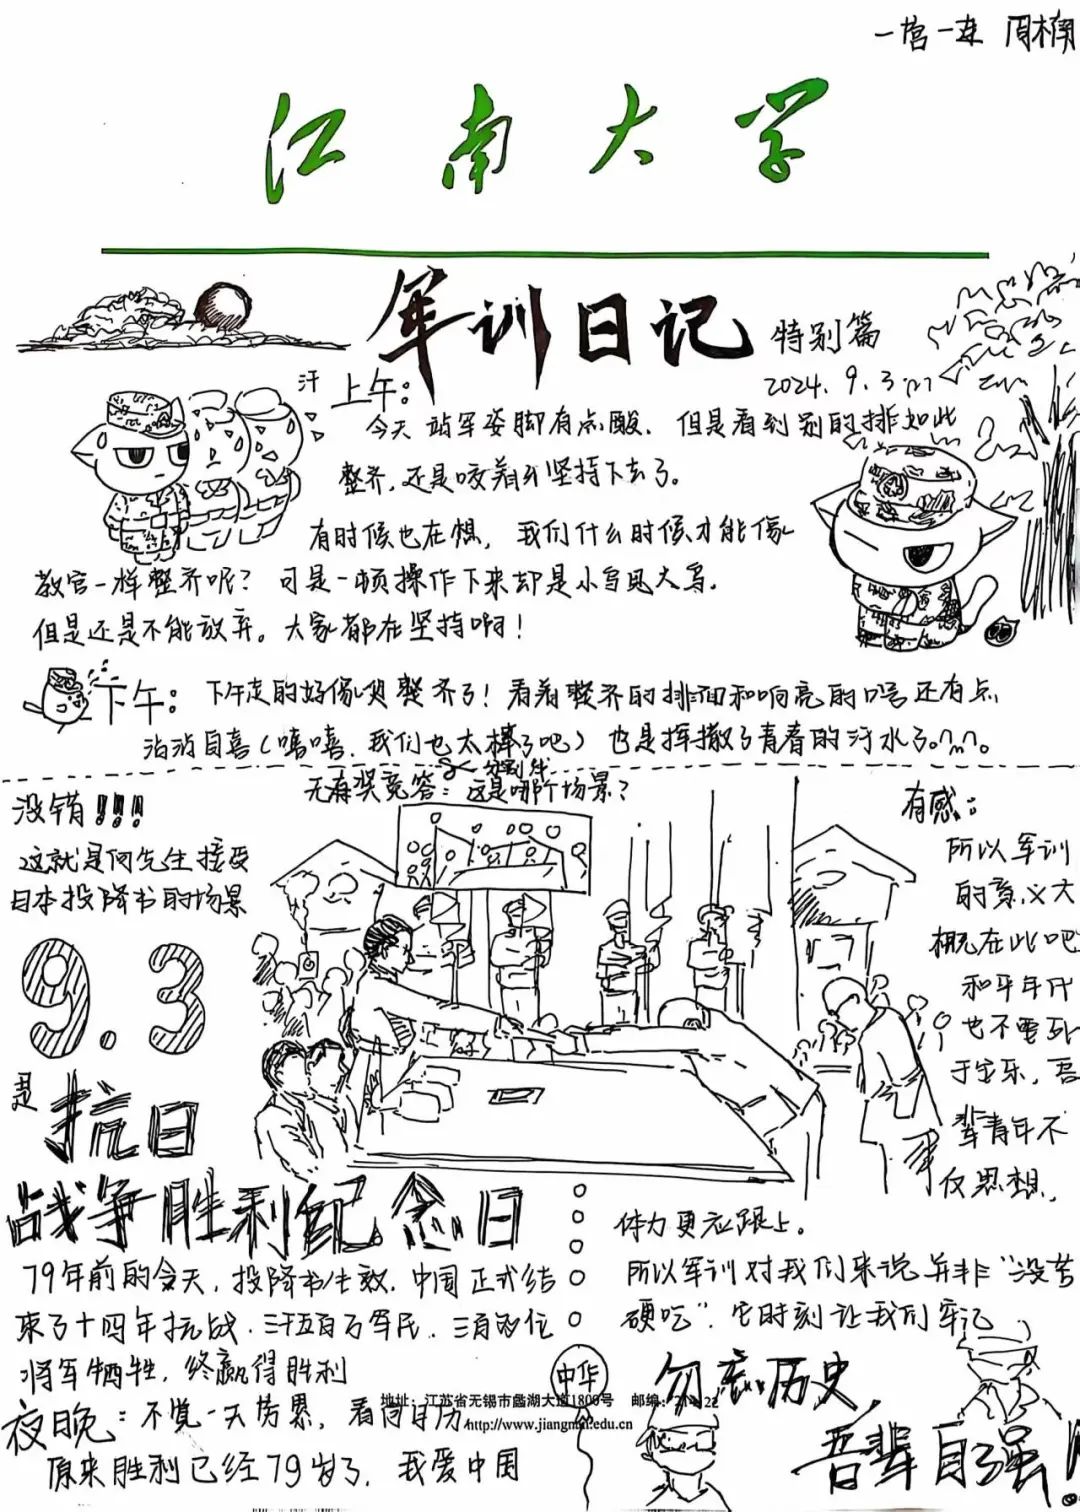 一营一连 周楠
江南大学
军训日记 特别篇
2024.9.3
汗
上午：
今天站军姿脚有点酸，但是看到别的排如此
整齐，还是咬着牙坚持下去了。
有时候也在想，我们什么时候才能像
教官一样整齐呢？可是一顿操作下来却是小鸟见大鸟。
但是还是不能放弃。大家都在坚持啊！
下午：下午走的好像更整齐了！看着整齐的排面和响亮的口号还有点
沾沾自喜（嘻嘻，我们也太棒了吧）也是挥撒了青春的汗水了。
分割线
无有奖竞答：这是哪个场景？
没错!!!
这就是何先生接受
日本投降书的场景
9.3
是抗日
战争胜利纪念日
79年前的今天，投降书生效，中国正式结
束了十四年抗战，三千五百万军民，三百多位
将军牺牲，终赢得胜利
夜晚：不觉一天劳累，看向日历
原来胜利已经79岁了，我爱中国
有感：
所以军训
的意义大
概在此吧
和平年代
也不要死
于安乐，吾
辈青年不
仅思想，
体力更应跟上。
所以军训对我们来说并非“没苦
硬吃”，它时刻让我们牢记
中华
勿忘历史，
吾辈自强！
地址：江苏省无锡市蠡湖大道1800号 邮编：214122
http://www.jiangnan.edu.cn